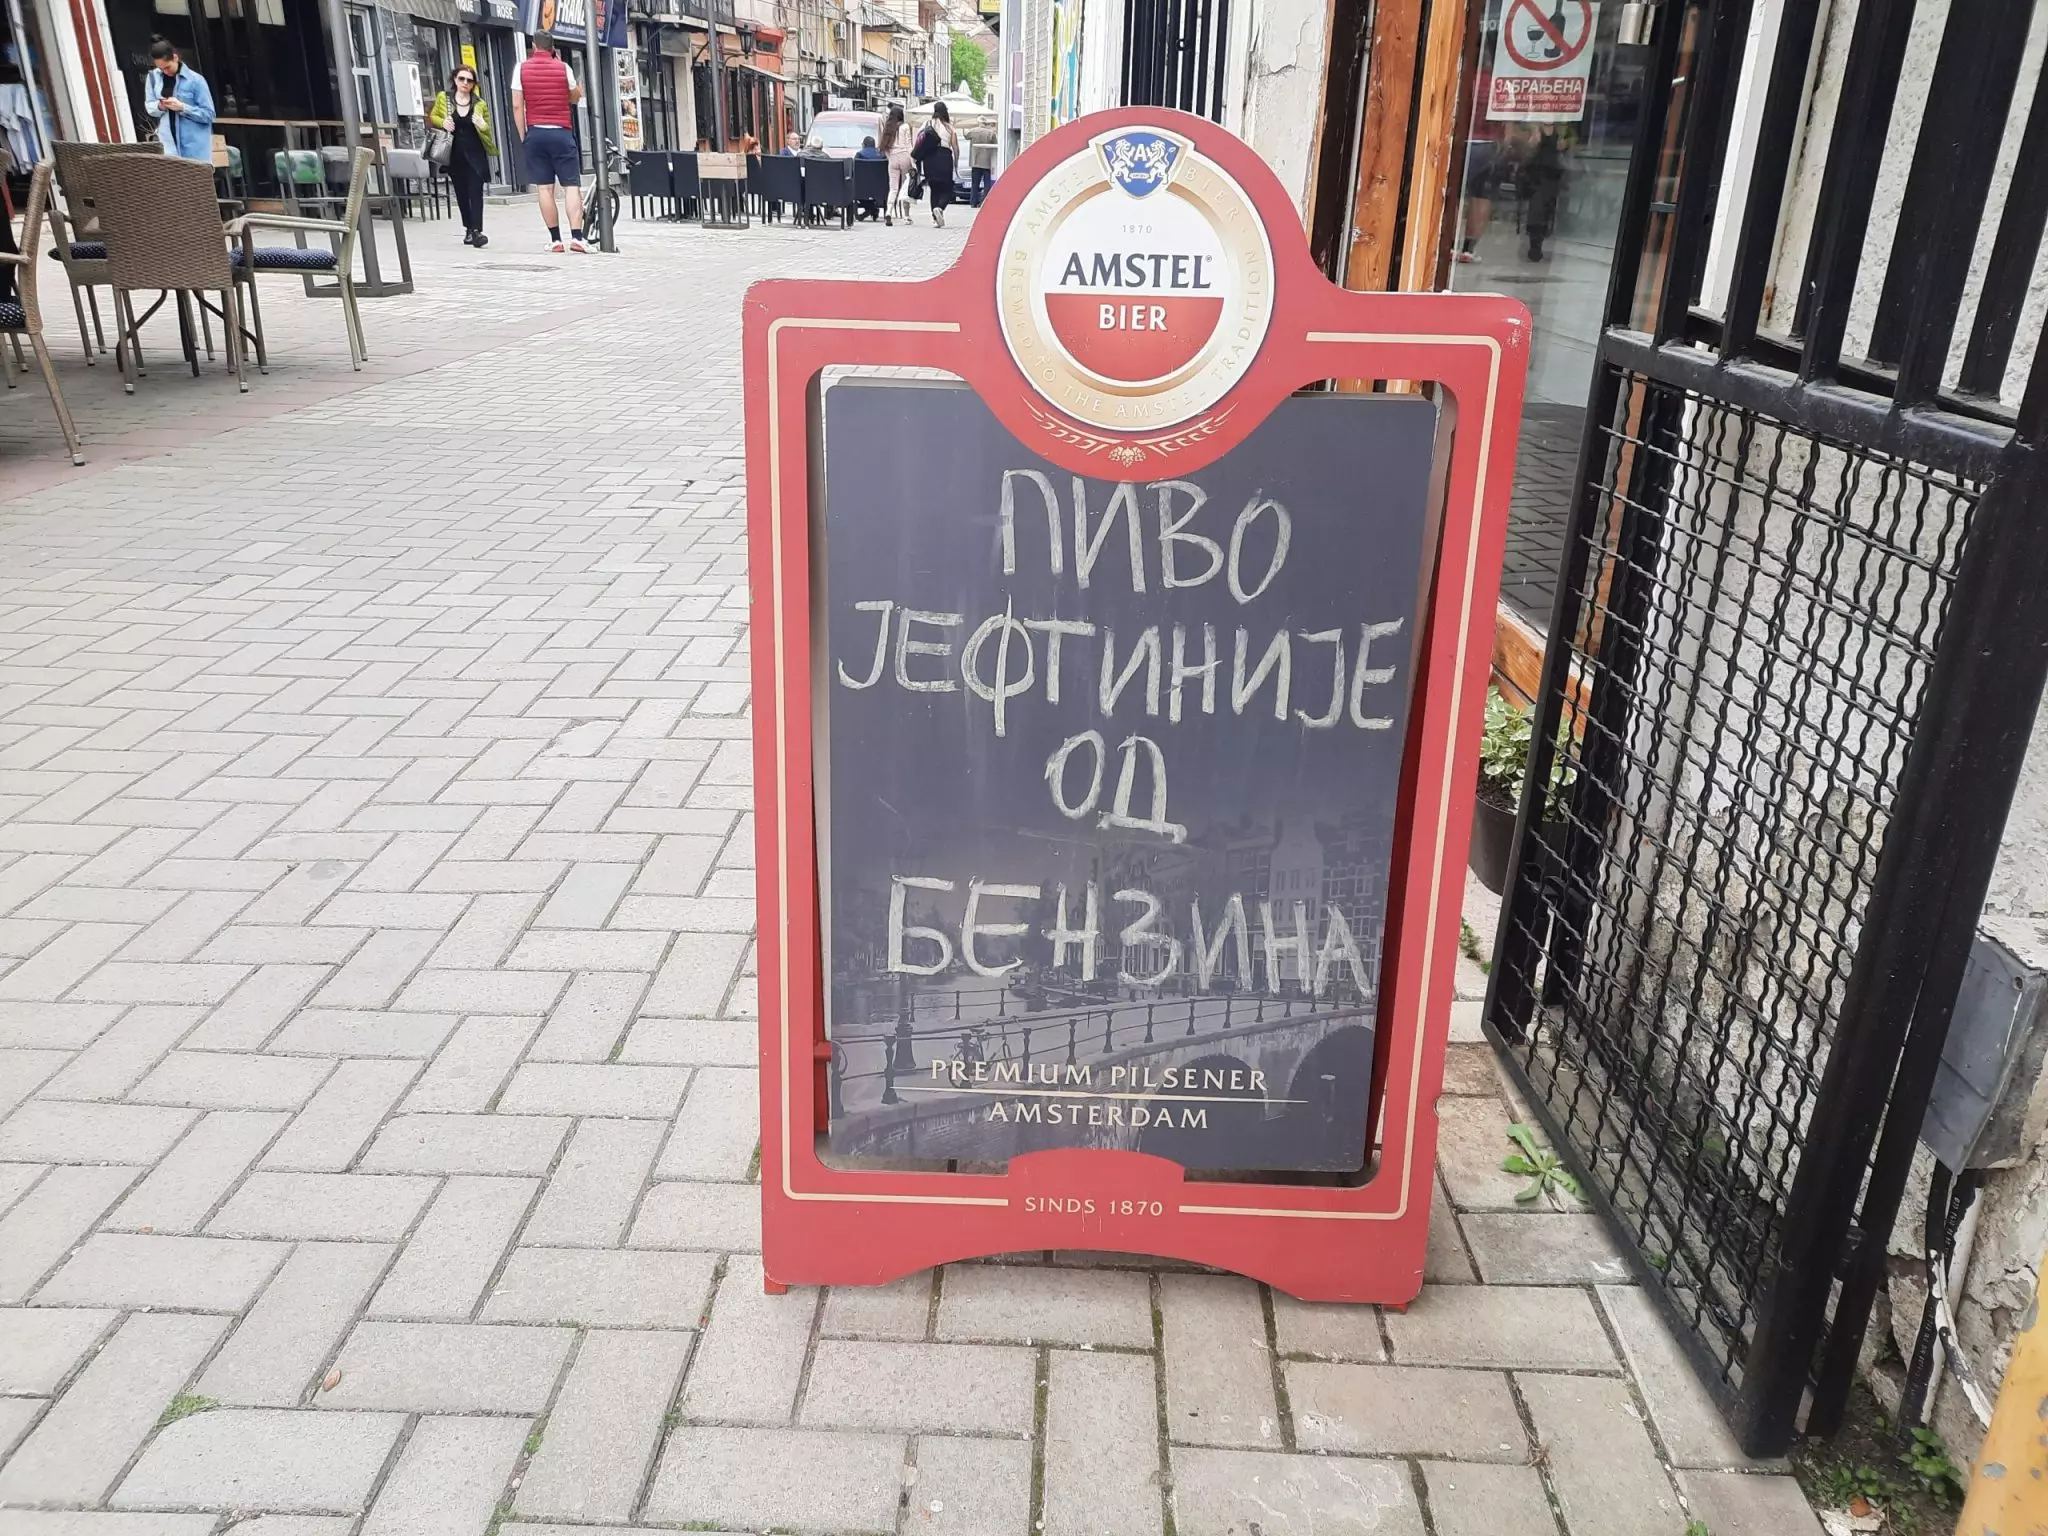 ROSE
ЗАБРАЊЕНА
1870
AMSTEL®
BIER
AMSTEL BIER
BREWED TO THE AMSTEL TRADITION
ПИВО
ЈЕФТИНИЈЕ
ОД
БЕНЗИНА
PREMIUM PILSENER
AMSTERDAM
SINDS 1870